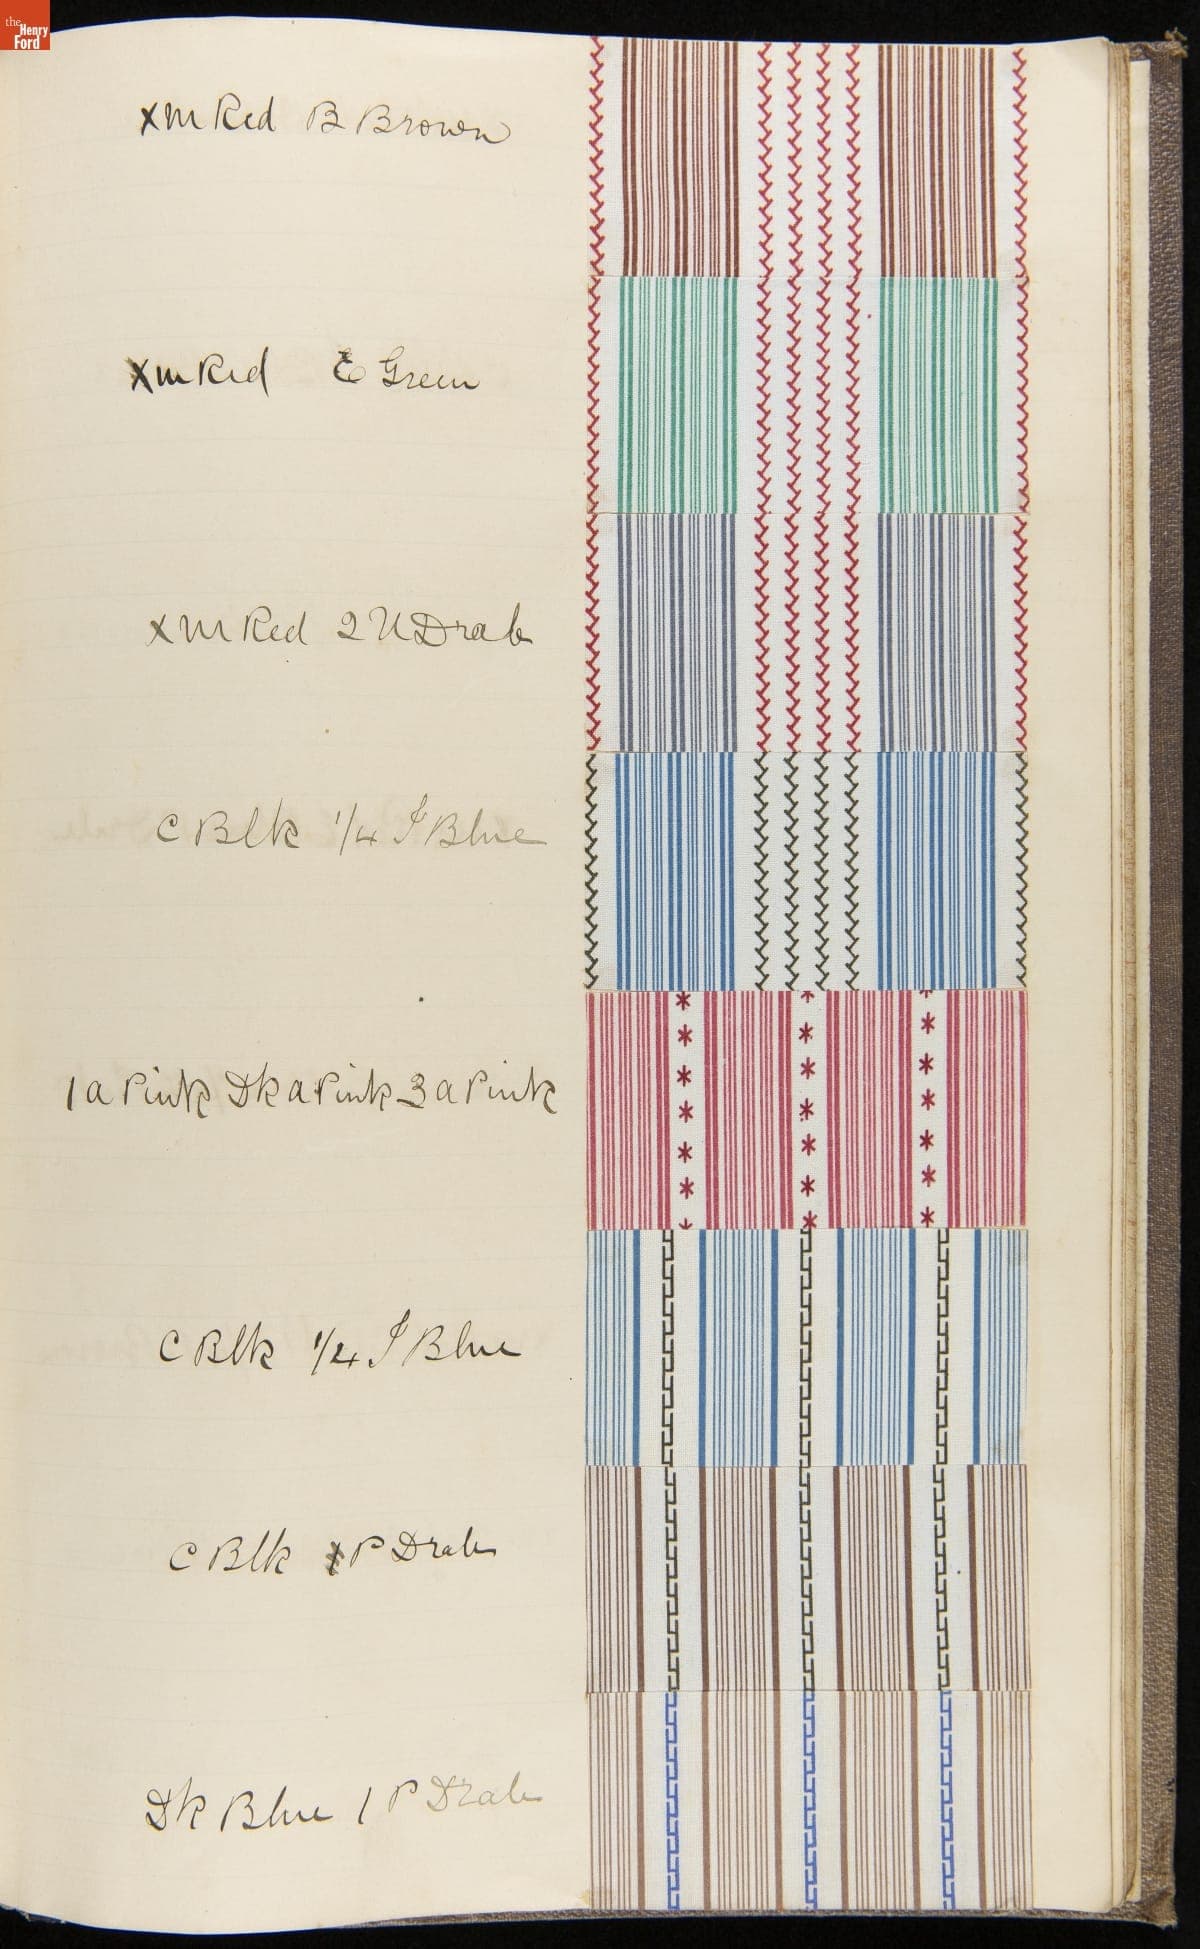 the
Henry
Ford
XM Red B Brown
XM Red E Green
XM Red 2 U Drab
C Blk 1/4 J Blue
1 a Pink Dk a Pink 3 a Pink
C Blk 1/4 J Blue
C Blk P Drab
Dk Blue 1 P Drab